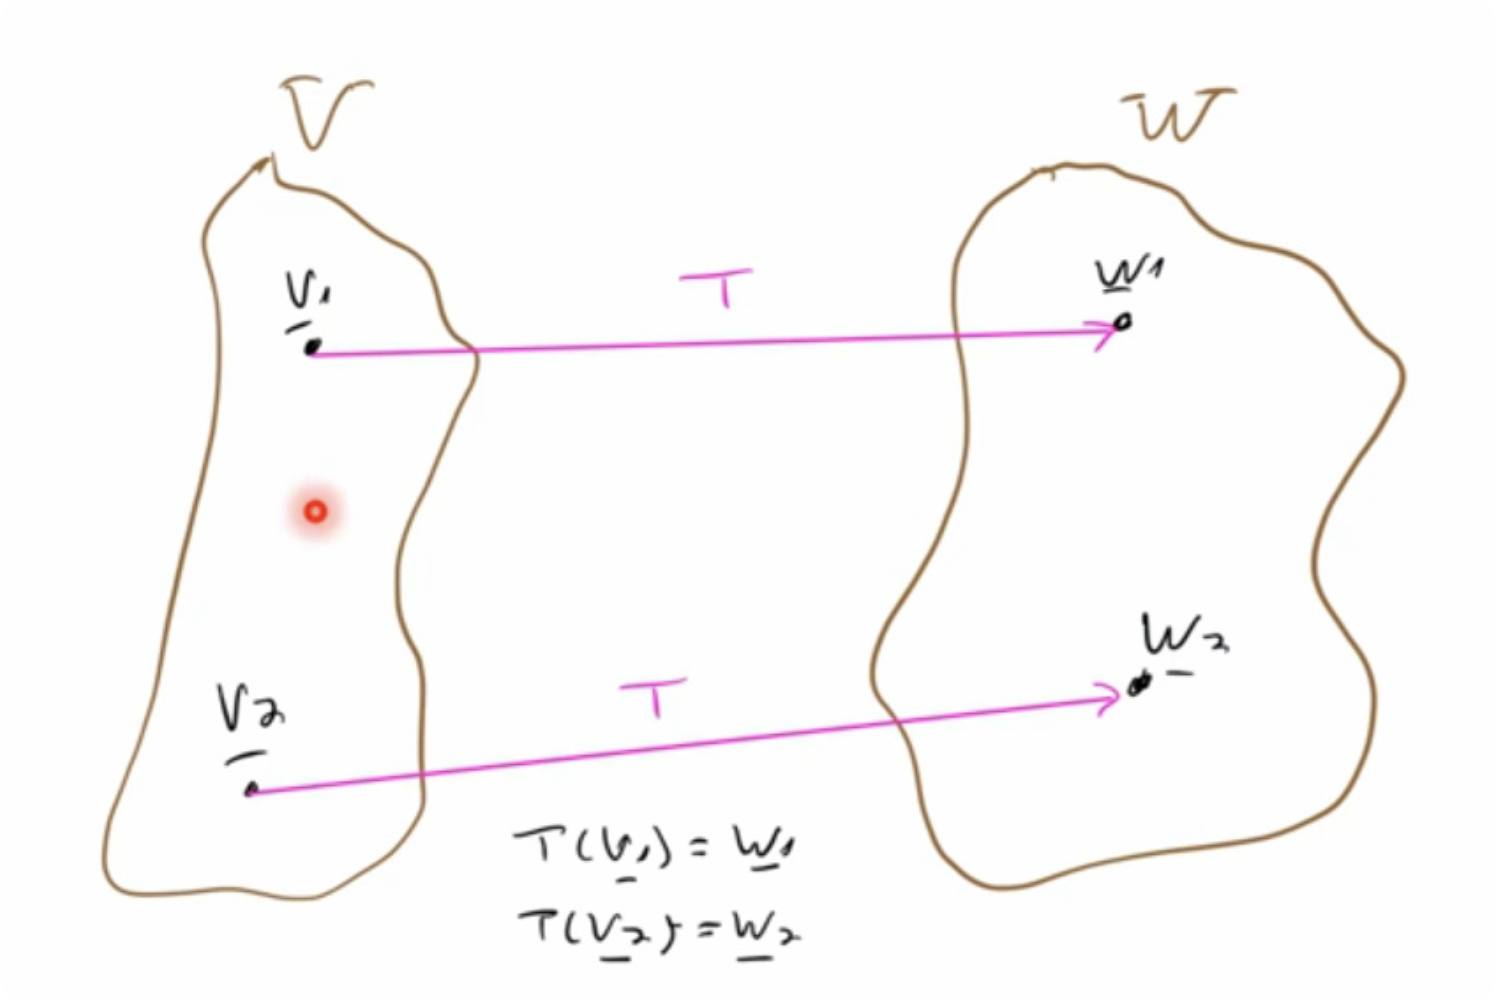 V W
V1 T W1
V2 T W2
T(V1) = W1
T(V2) = W2